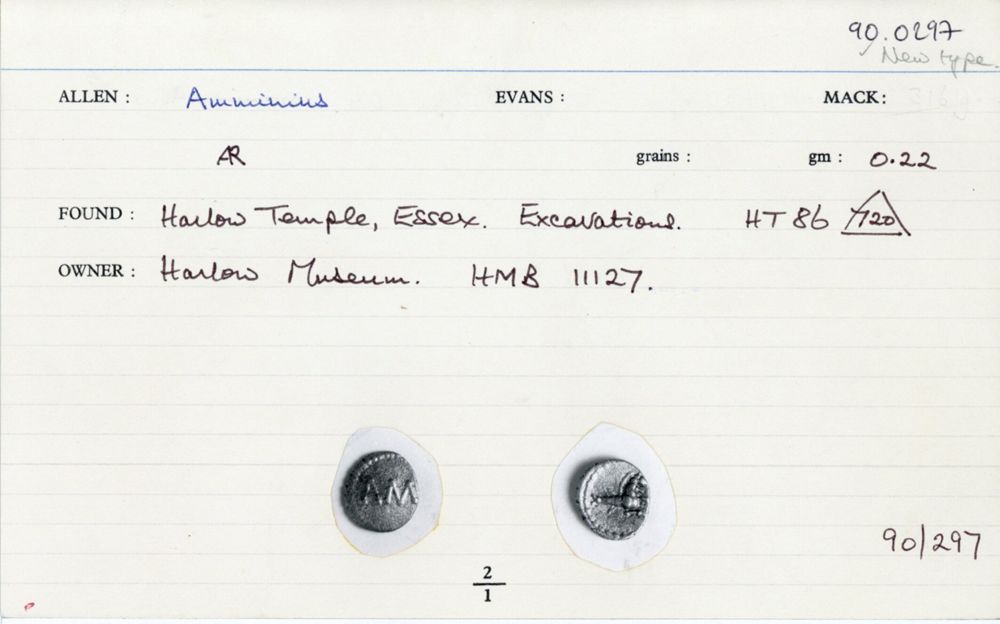 90.0297
✓ New type.
ALLEN : Amminius EVANS : MACK:
AR grains : gm : 0.22
FOUND : Harlow Temple, Essex. Excavations. HT 86 720
OWNER : Harlow Museum. HMB 11127.
AM
90/297
2
1